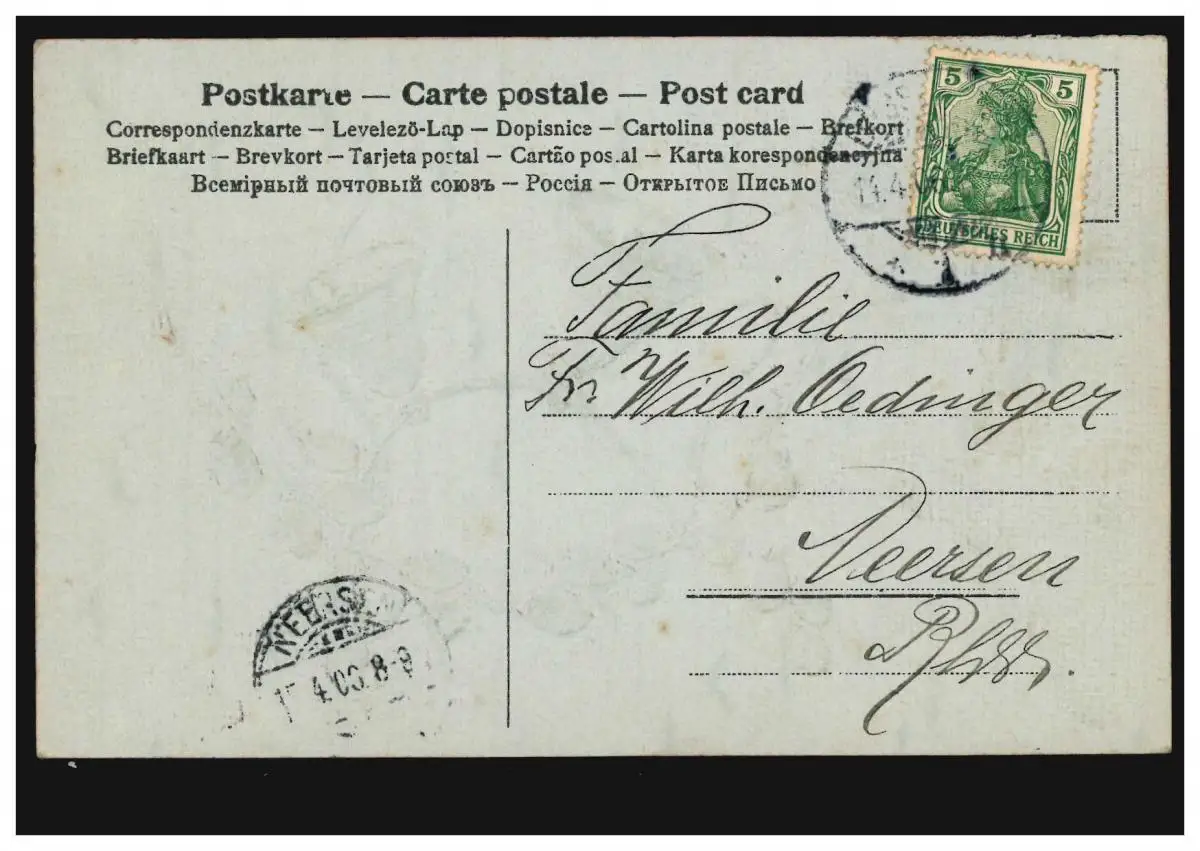 Postkarte — Carte postale — Post card
Correspondenzkarte — Levelező-Lap — Dopisnice — Cartolina postale — Brefkort
Briefkaart — Brevkort — Tarjeta postal — Cartão postal — Karta korespondencyjna
Всемірный почтовый союзъ — Россія — Открытое Письмо
5 5
DEUTSCHES REICH
14.4.06
Familie
Fr. Wilh. Oedinger
Neersen
Rhld.
NEERSEN
4.06.8-9